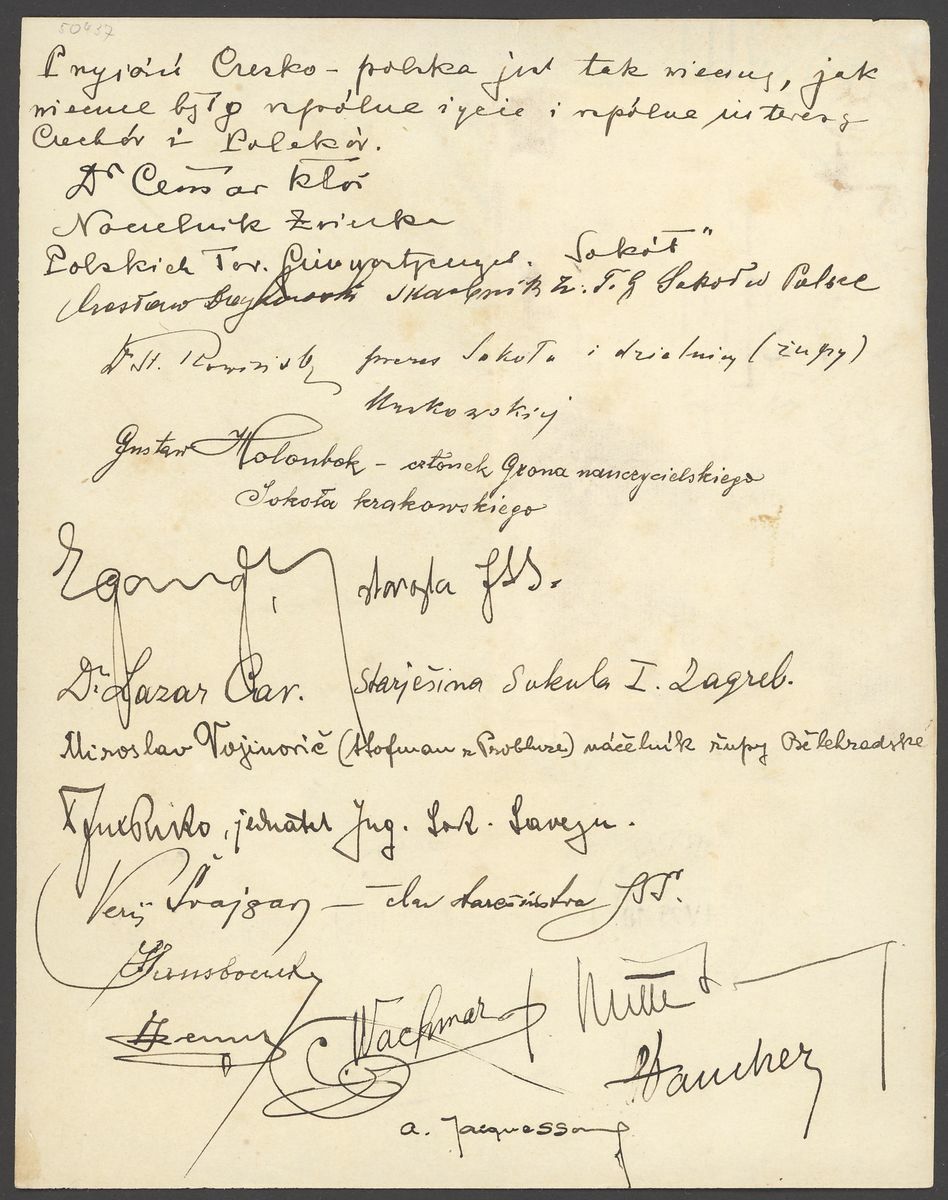 50437
Przyjaźń Czesko-polska jest tak wieczną, jak
wieczne było wspólne życie i wspólne interesy
Czechów i Polaków.
Dr
Naczelnik Związku
Polskich Tow. Gimnastycznych. "Sokół"
Czesław skarbnik Z. T. G Sokół w Polsce
Dr. prezes Sokoła i dzielnicy (župy)
Krakowskiej
Gustaw Holoubek - członek Grona nauczycielskiego
Sokoła krakowskiego
E. Gangl, starosta JSS.
Dr. Lazar Car. Starješina Sokola I. Zagreb.
Miroslav Vojinovič (Hofman z Probluze) náčelník župy Bělehradské
jednatel Jug. Sok. Saveza.
Verij Švajgar – član starešinstva JSS.
Wachmar
A. Jacquesson